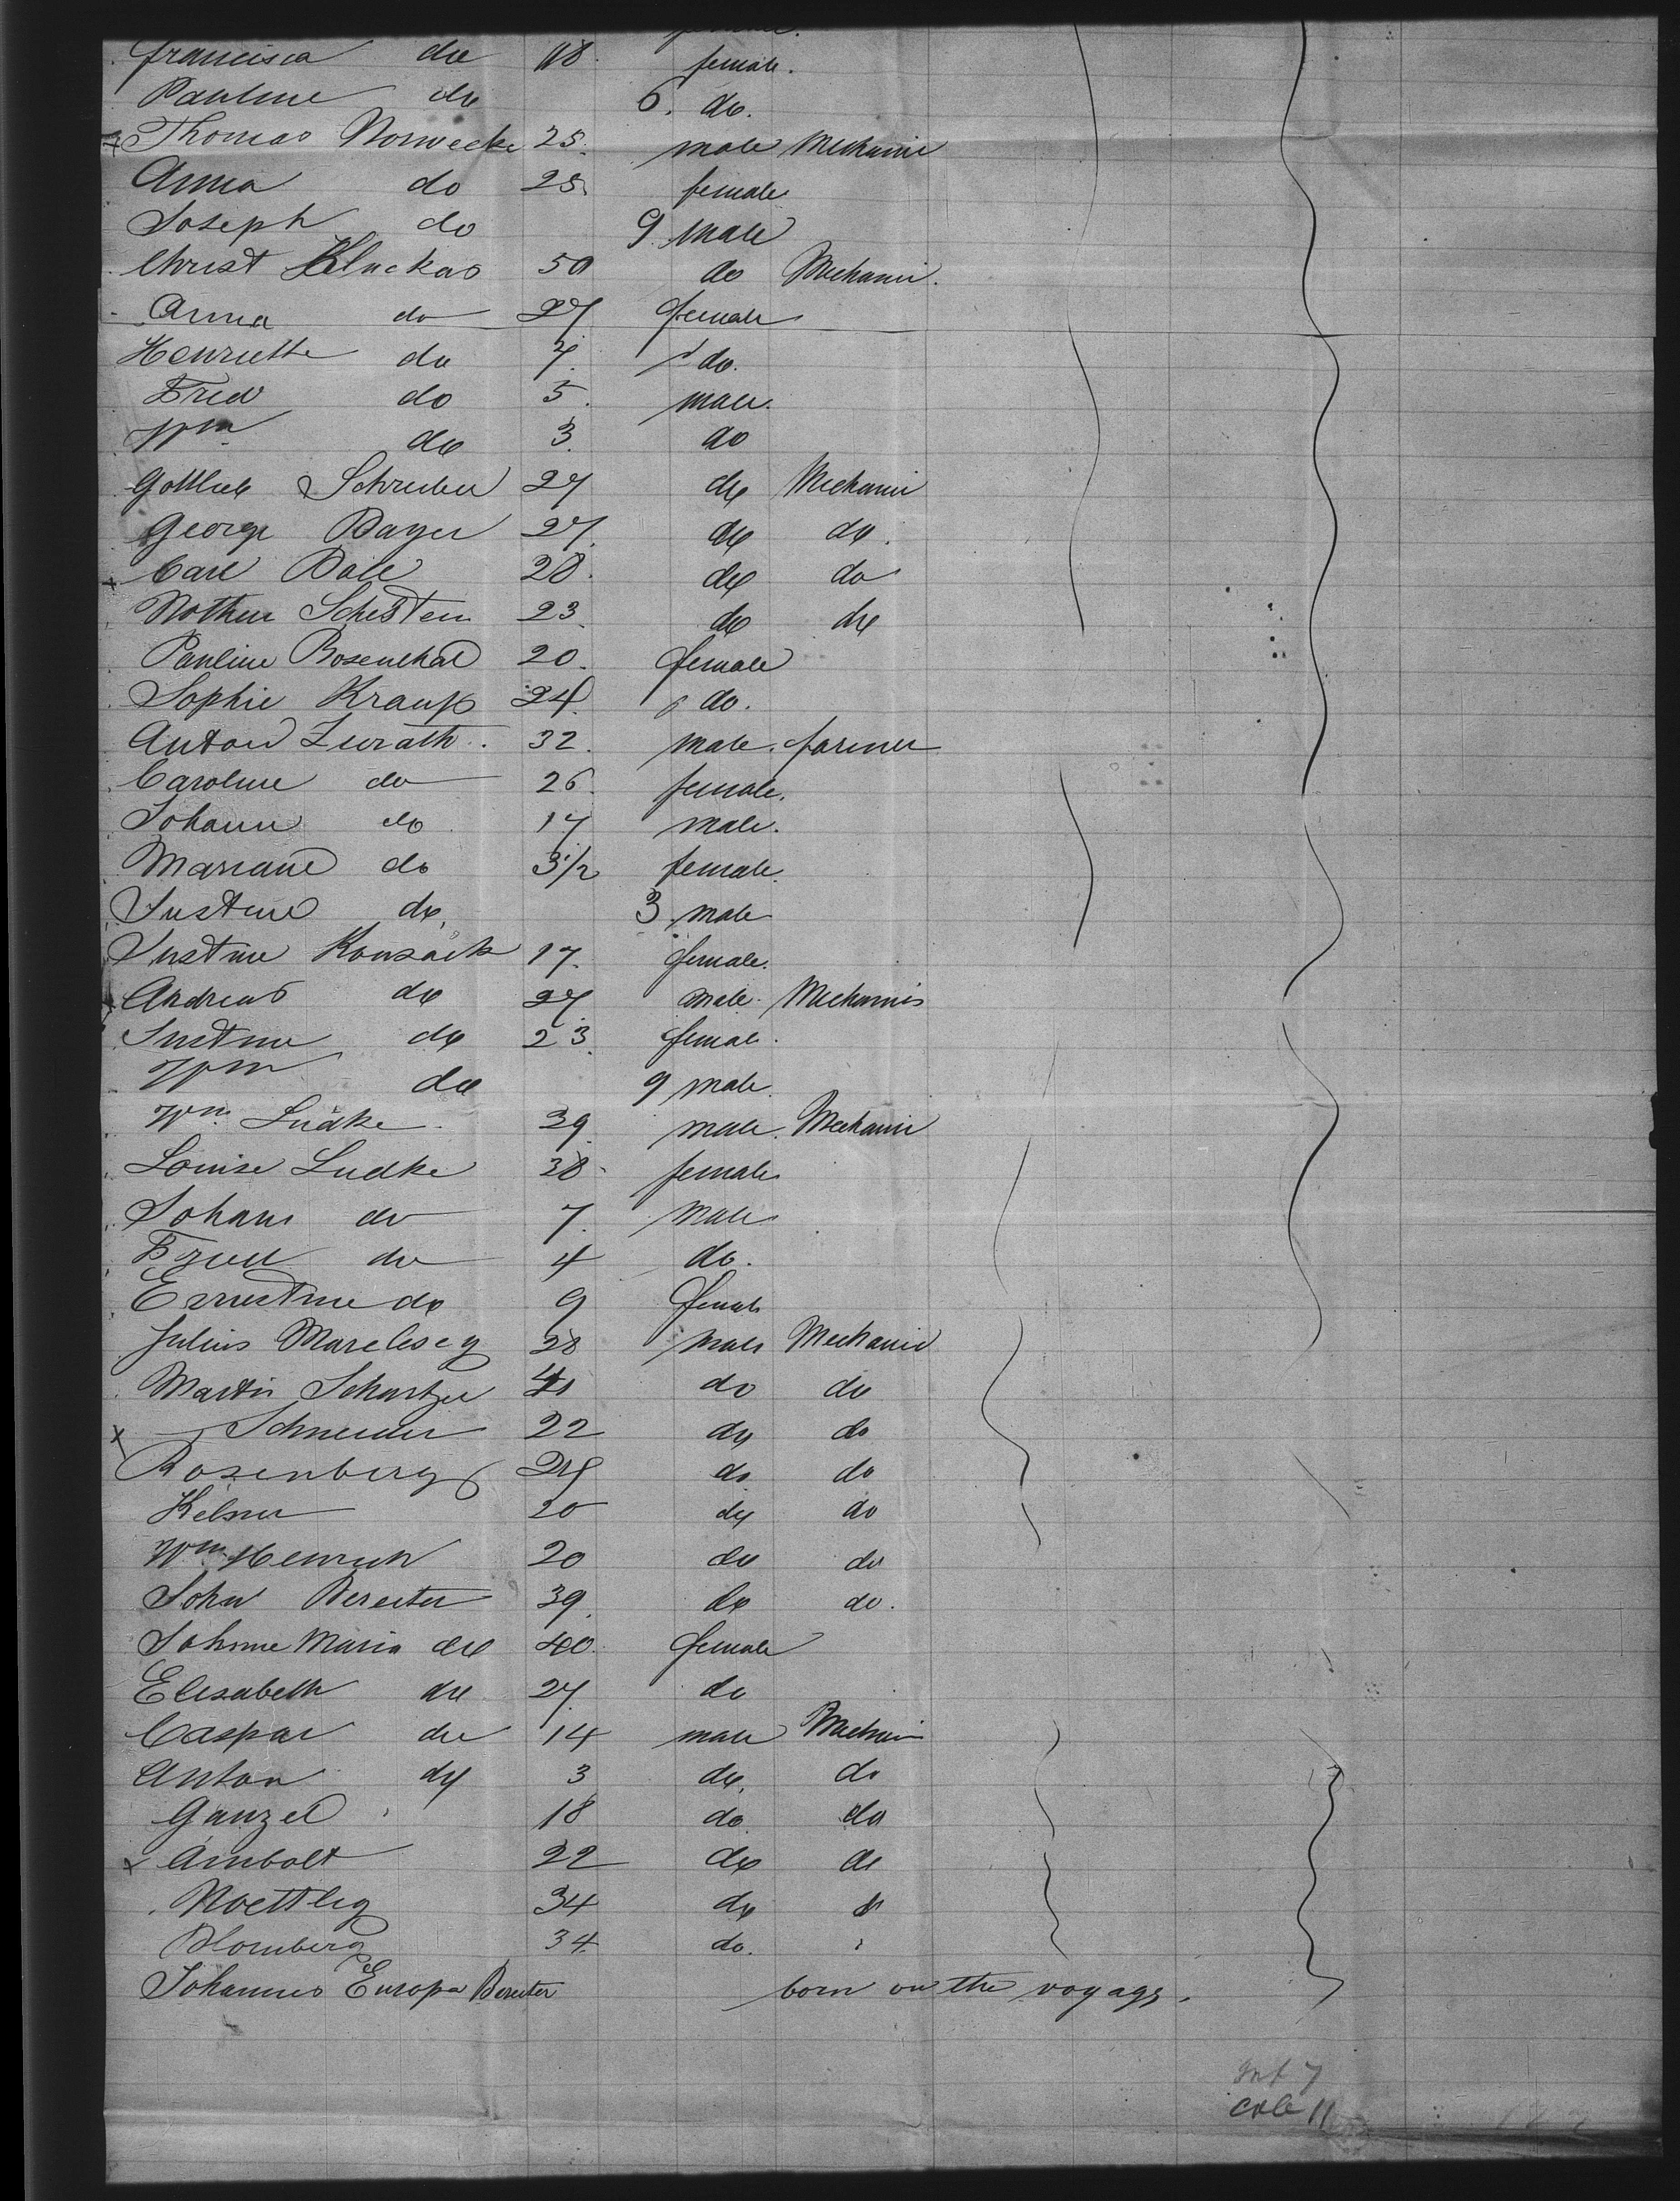 Francisca do 18. female.
Pauline do 6. do.
Thomas Norwecke 25. male Mechanic
Anna do 25. female
Joseph do 9 male
Christ Kluckas 50 do Mechanic.
Anna do 27 female
Henriette do 7. do.
Fred do 5. male.
Wm do 3. do
Gottlieb Schreiber 27 do Mechanic
George Bayer 27. do do.
Carl Bale 28. do do
Nothen Schesten 23. do do
Pauline Rosenthal 20. female
Sophie Krauß 24. do.
Anton Zurath. 32. male. farmer
Caroline do 26. female.
Johann do 17 male.
Mariane do 3 1/2 female.
Justine do. 3. male
Justine Konsack 17. female.
Andreas do 27. male. Mechanic
Justine do 23. female.
Wm do 9 male.
Wm. Ludke 39. male. Mechanic
Louise Ludke 38. female
Johann do 7. male
Fred do 4 do.
Ernestine do 9 female
Julius 28 male Mechanic
Martin Schartzer do do
Schneider 22 do do
Rosenberg do do
Kelner 20 do do
Wm Henrich 20 do do
John Bereiter 39. do do.
Johnne Maria do 40. female
Elisabeth do 27. do
Caspar do 14 male Mechanic
Anton do 3 do. do
Ganzel 18 do. do
Ambolt 22 do do
Noettlig 34 do
Blomberg 34. do.
Johannes Europa Bereiter born on the voyage.
Inf 7
cole 11